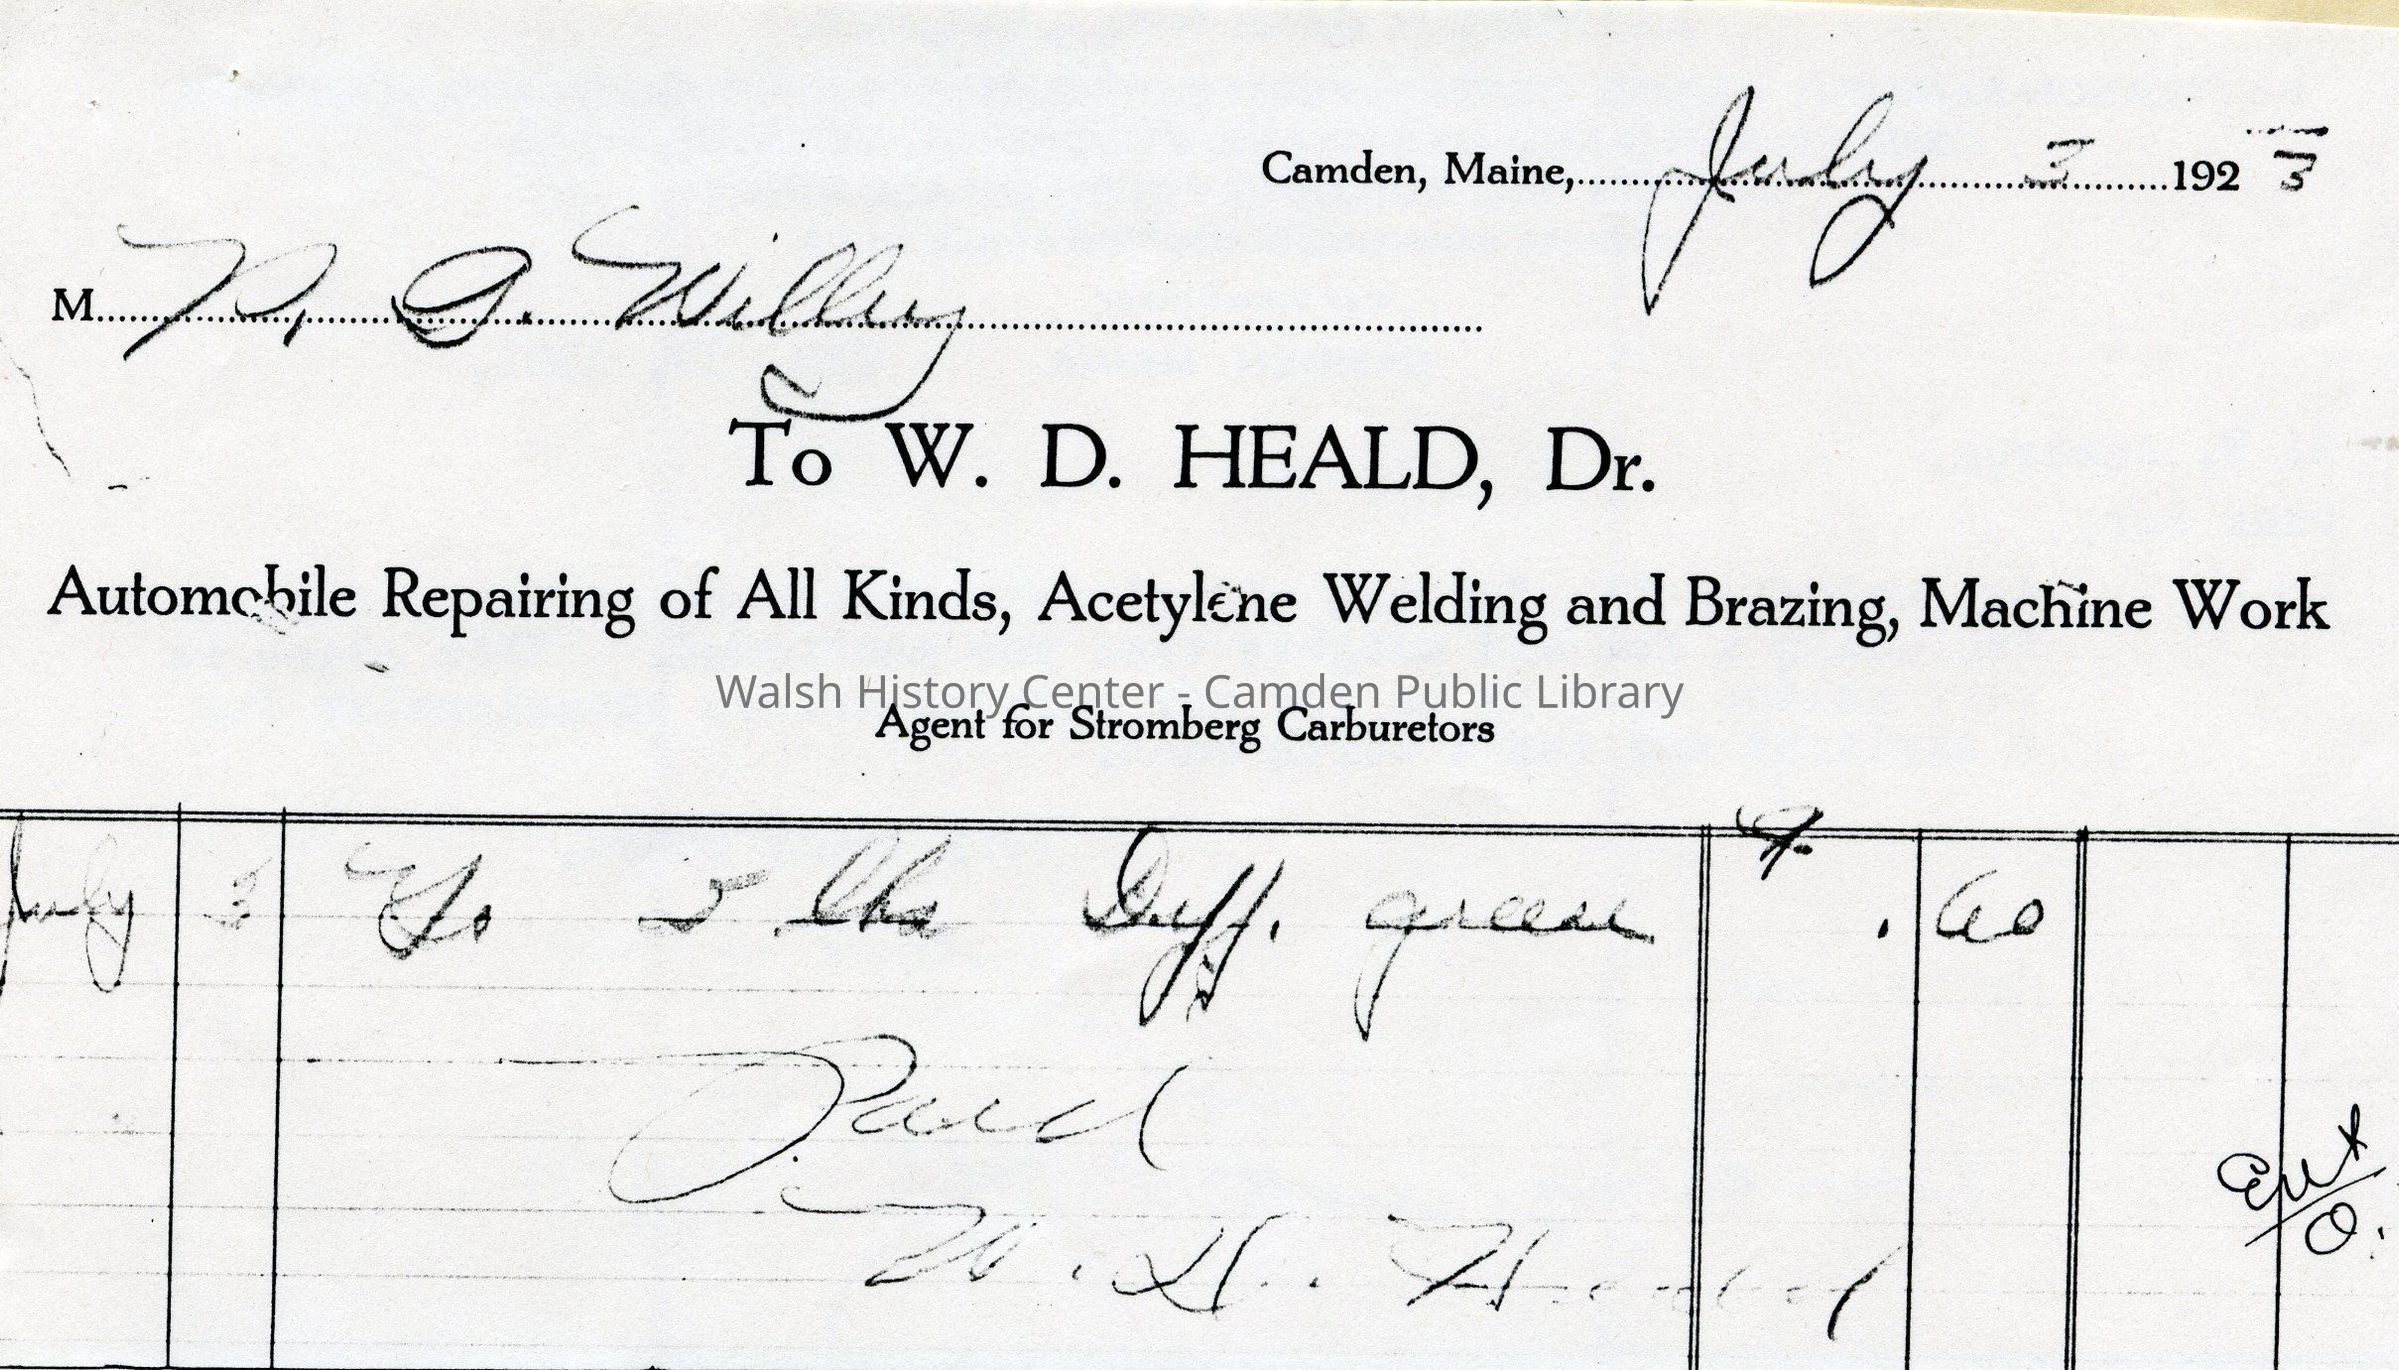 Camden, Maine, July 3 1923
M P. G. Willey
To W. D. HEALD, Dr.
Automobile Repairing of All Kinds, Acetylene Welding and Brazing, Machine Work
Walsh History Center - Camden Public Library
Agent for Stromberg Carburetors
July 3 To 5 lbs Diff. grease .60
Paid
W. D. Heald